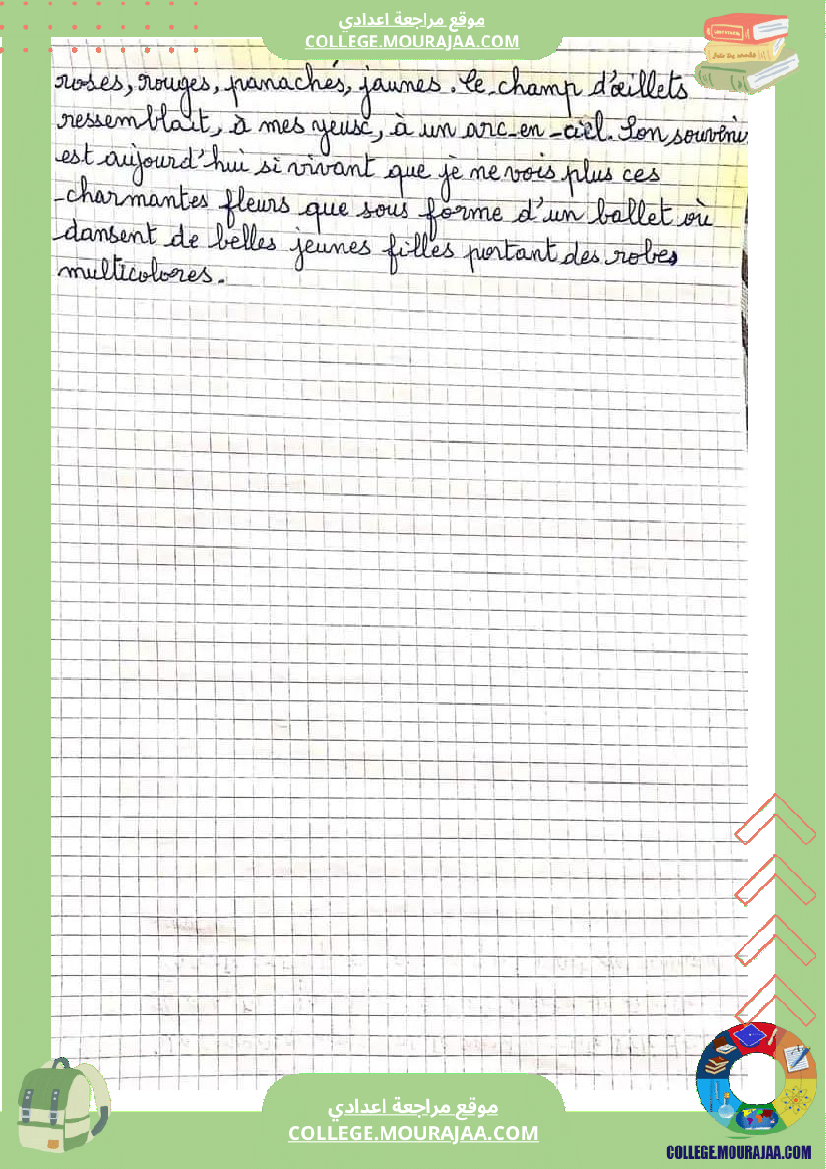 موقع مراجعة اعدادي
COLLEGE.MOURAJAA.COM
roses, rouges, panachés, jaunes. Le champ d'œillets
ressemblait, à mes yeux, à un arc-en-ciel. Son souvenir
est aujourd'hui si vivant que je ne vois plus ces
charmantes fleurs que sous forme d'un ballet où
dansent de belles jeunes filles portant des robes
multicolores.
موقع مراجعة اعدادي
COLLEGE.MOURAJAA.COM
COLLEGE.MOURAJAA.COM